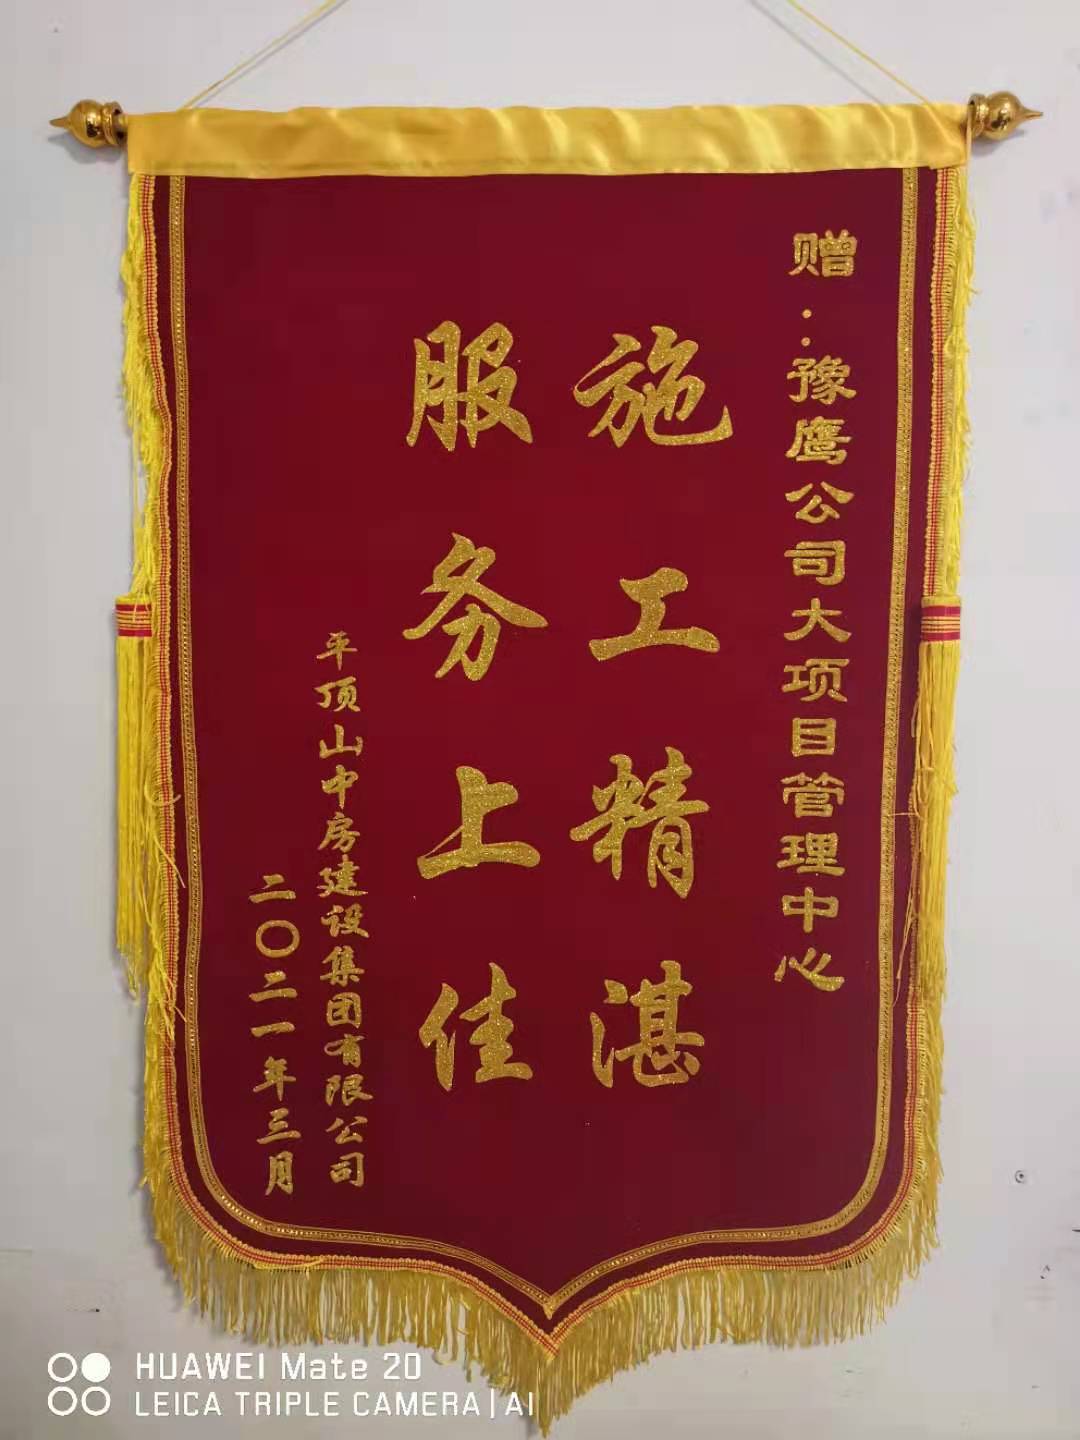 赠：豫鹰公司大项目管理中心
施工精湛
服务上佳
平顶山中房建设集团有限公司
二〇二一年三月
HUAWEI Mate 20
LEICA TRIPLE CAMERA | AI